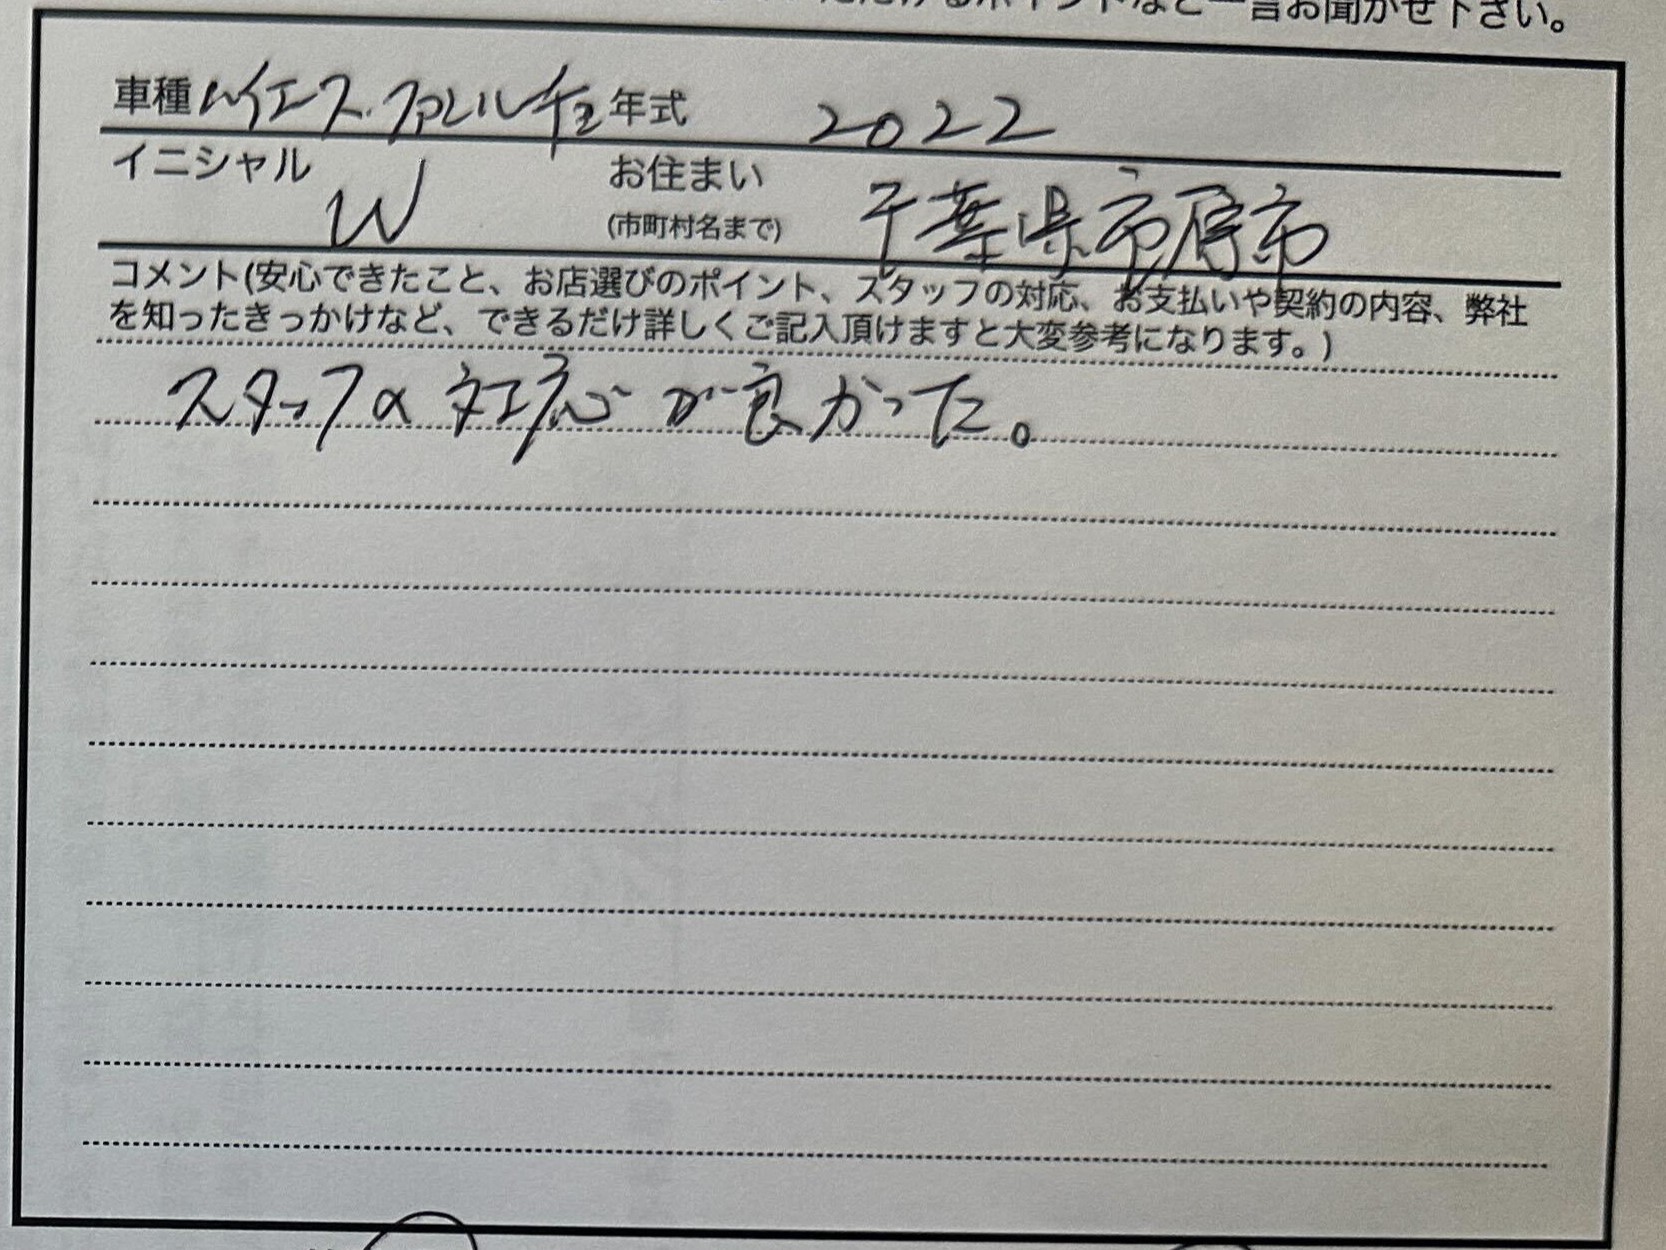 るポイントなど一言お聞かせ下さい。
車種 ハイエース.ファルルチェ 年式 2022
イニシャル W お住まい (市町村名まで) 千葉県市原市
コメント(安心できたこと、お店選びのポイント、スタッフの対応、お支払いや契約の内容、弊社
を知ったきっかけなど、できるだけ詳しくご記入頂けますと大変参考になります。)
スタッフの対応が良かった。